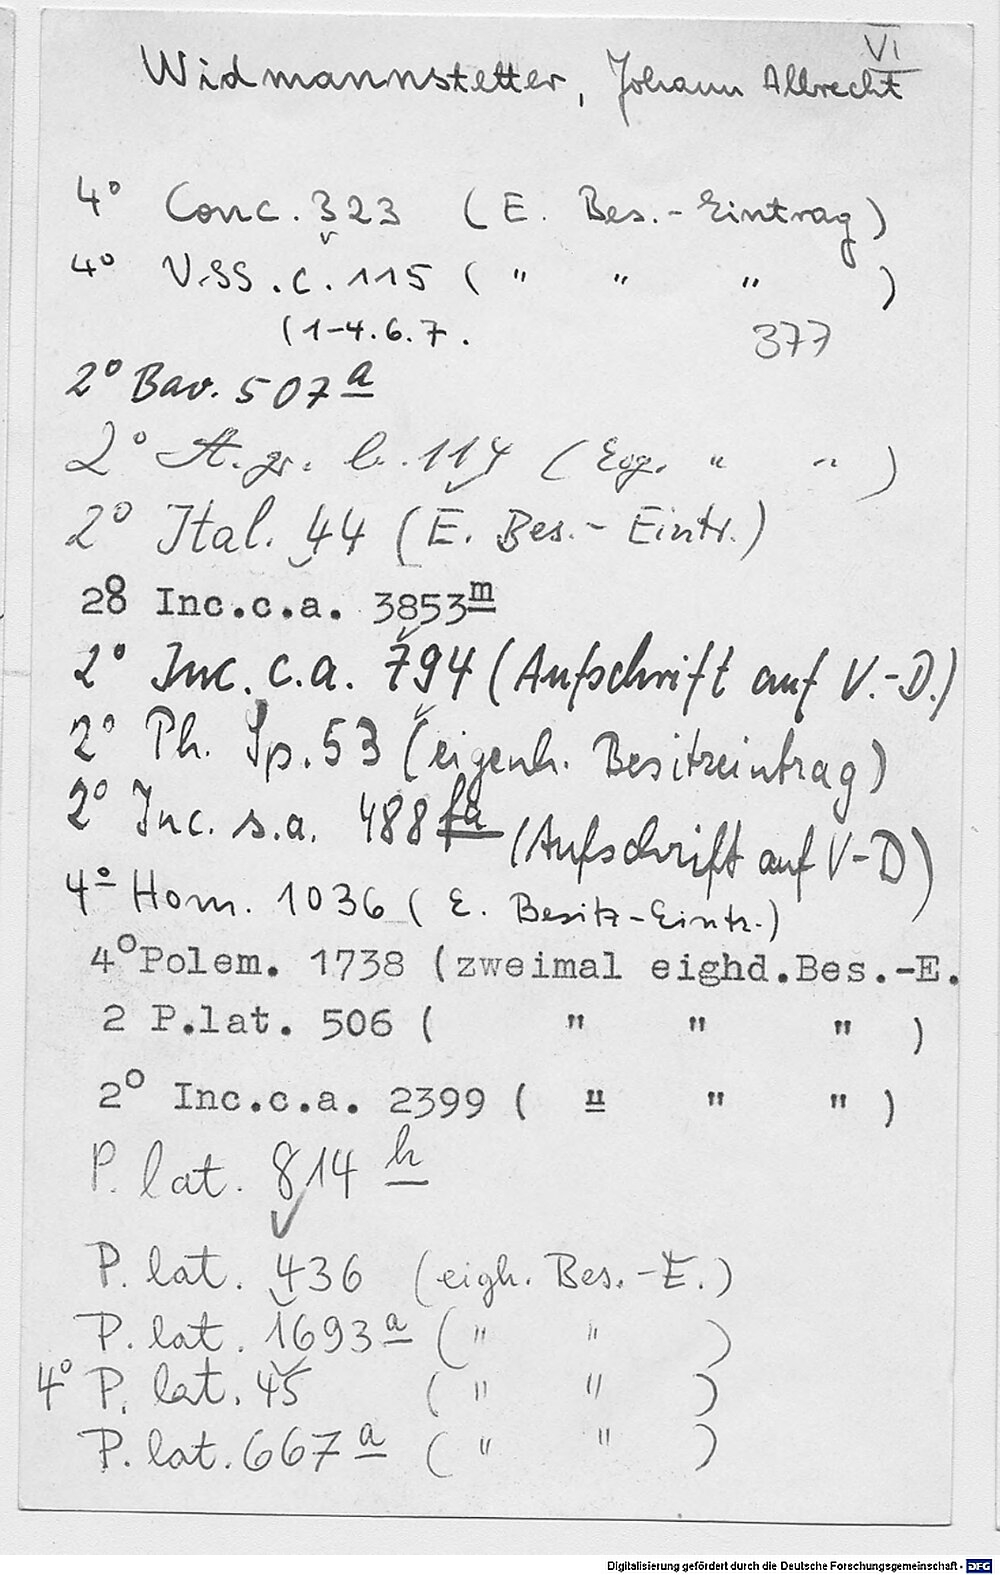 VI
Widmannstetter, Johann Albrecht
4° Conc. 323 (E. Bes.-Eintrag)
4° V.SS.c. 115 ( " " " )
(1-4.6.7. 377
2° Bav. 507 a
2° A.gr. b. 114 ( Eig. " " )
2° Ital. 44 (E. Bes.-Eintr.)
28 Inc.c.a. 3853m
2° Inc. c.a. 794 (Aufschrift auf V.-D.)
2° Ph. Sp. 53 (eigenh. Besitzeintrag)
2° Inc. s.a. 488 fa (Aufschrift auf V-D)
4° Hom. 1036 ( E. Besitz-Eintr.)
4° Polem. 1738 (zweimal eighd.Bes.-E.
2 P.lat. 506 ( " " " )
2° Inc.c.a. 2399 ( " " " )
P. lat. 814 h
P. lat. 436 (eigh. Bes.-E.)
P. lat. 1693 a ( " " )
4° P. lat. 45 ( " " )
P. lat. 667 a ( " " )
Digitalisierung gefördert durch die Deutsche Forschungsgemeinschaft - DFG